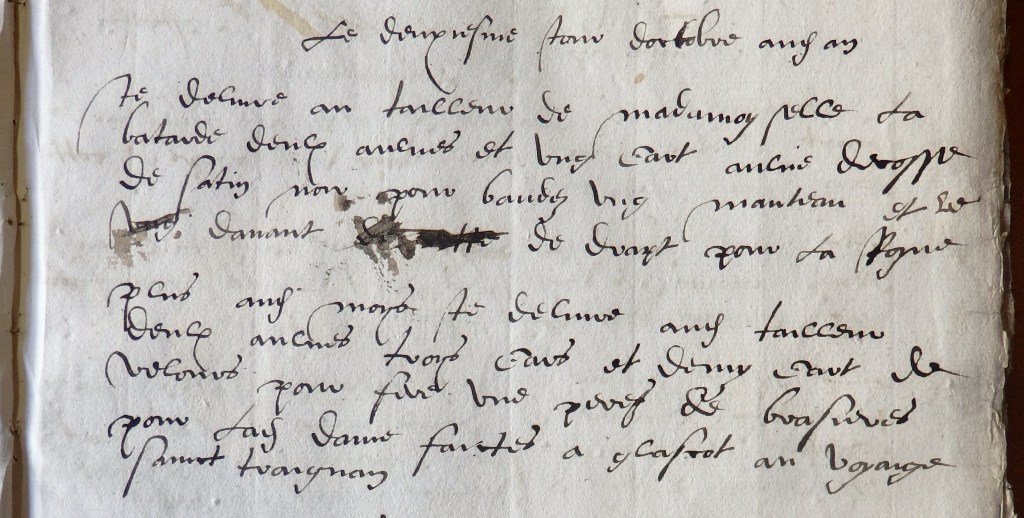 Le deuxiesme jour doctobre aud an
Je deliure au tailleur de madamoyselle la
batarde deulx aulnes et ung cart aulne decosse
de satin noir pour bander ung manteau et le
davant de drapt pour la Royne
plus aud moys je deliure aud tailleur
deulx aulnes troys cars et demy cart de
velours pour fere une pere de brasieres
pour lad dame faictes a glascot au voyaige
sainct traignan